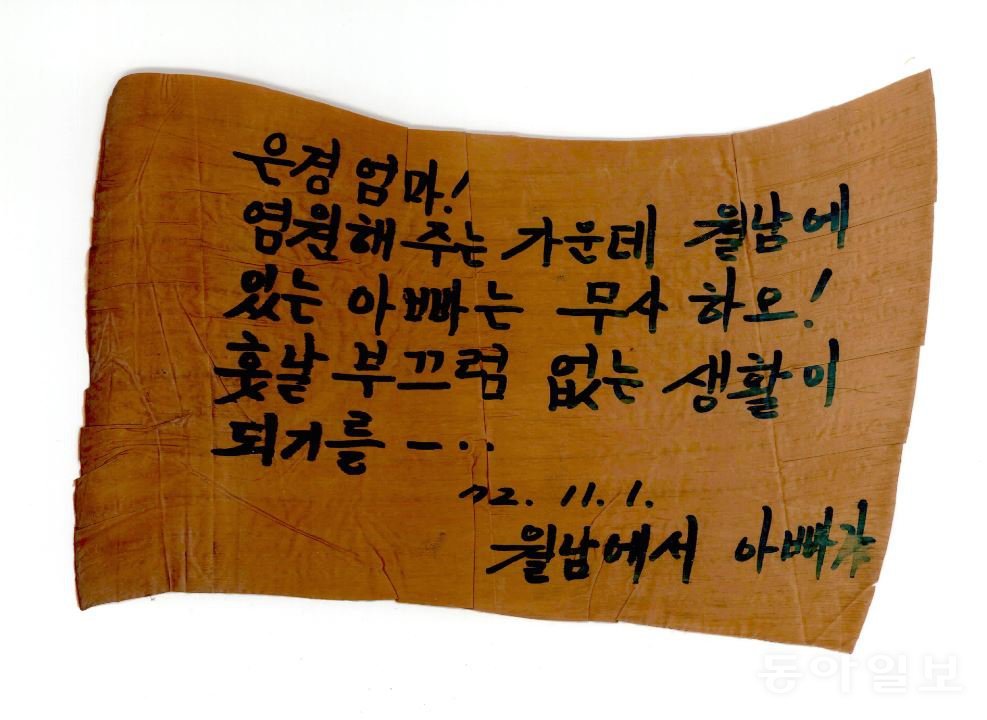 은경 엄마!
염원해 주는 가운데 월남에
있는 아빠는 무사 하오!
훗날 부끄럼 없는 생활이
되기를 -··
72. 11. 1.
월남에서 아빠가
동아일보